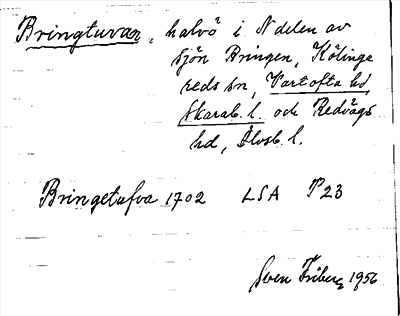 Bringtuvan, halvö i N delen av
sjön Bringen, Kölinga
reds sn, Vartofta hd
Skarab. l. och Redvägs
hd, Älvsb. l.
Bringetufva 1702 LSA P23
Sven Friberg 1956